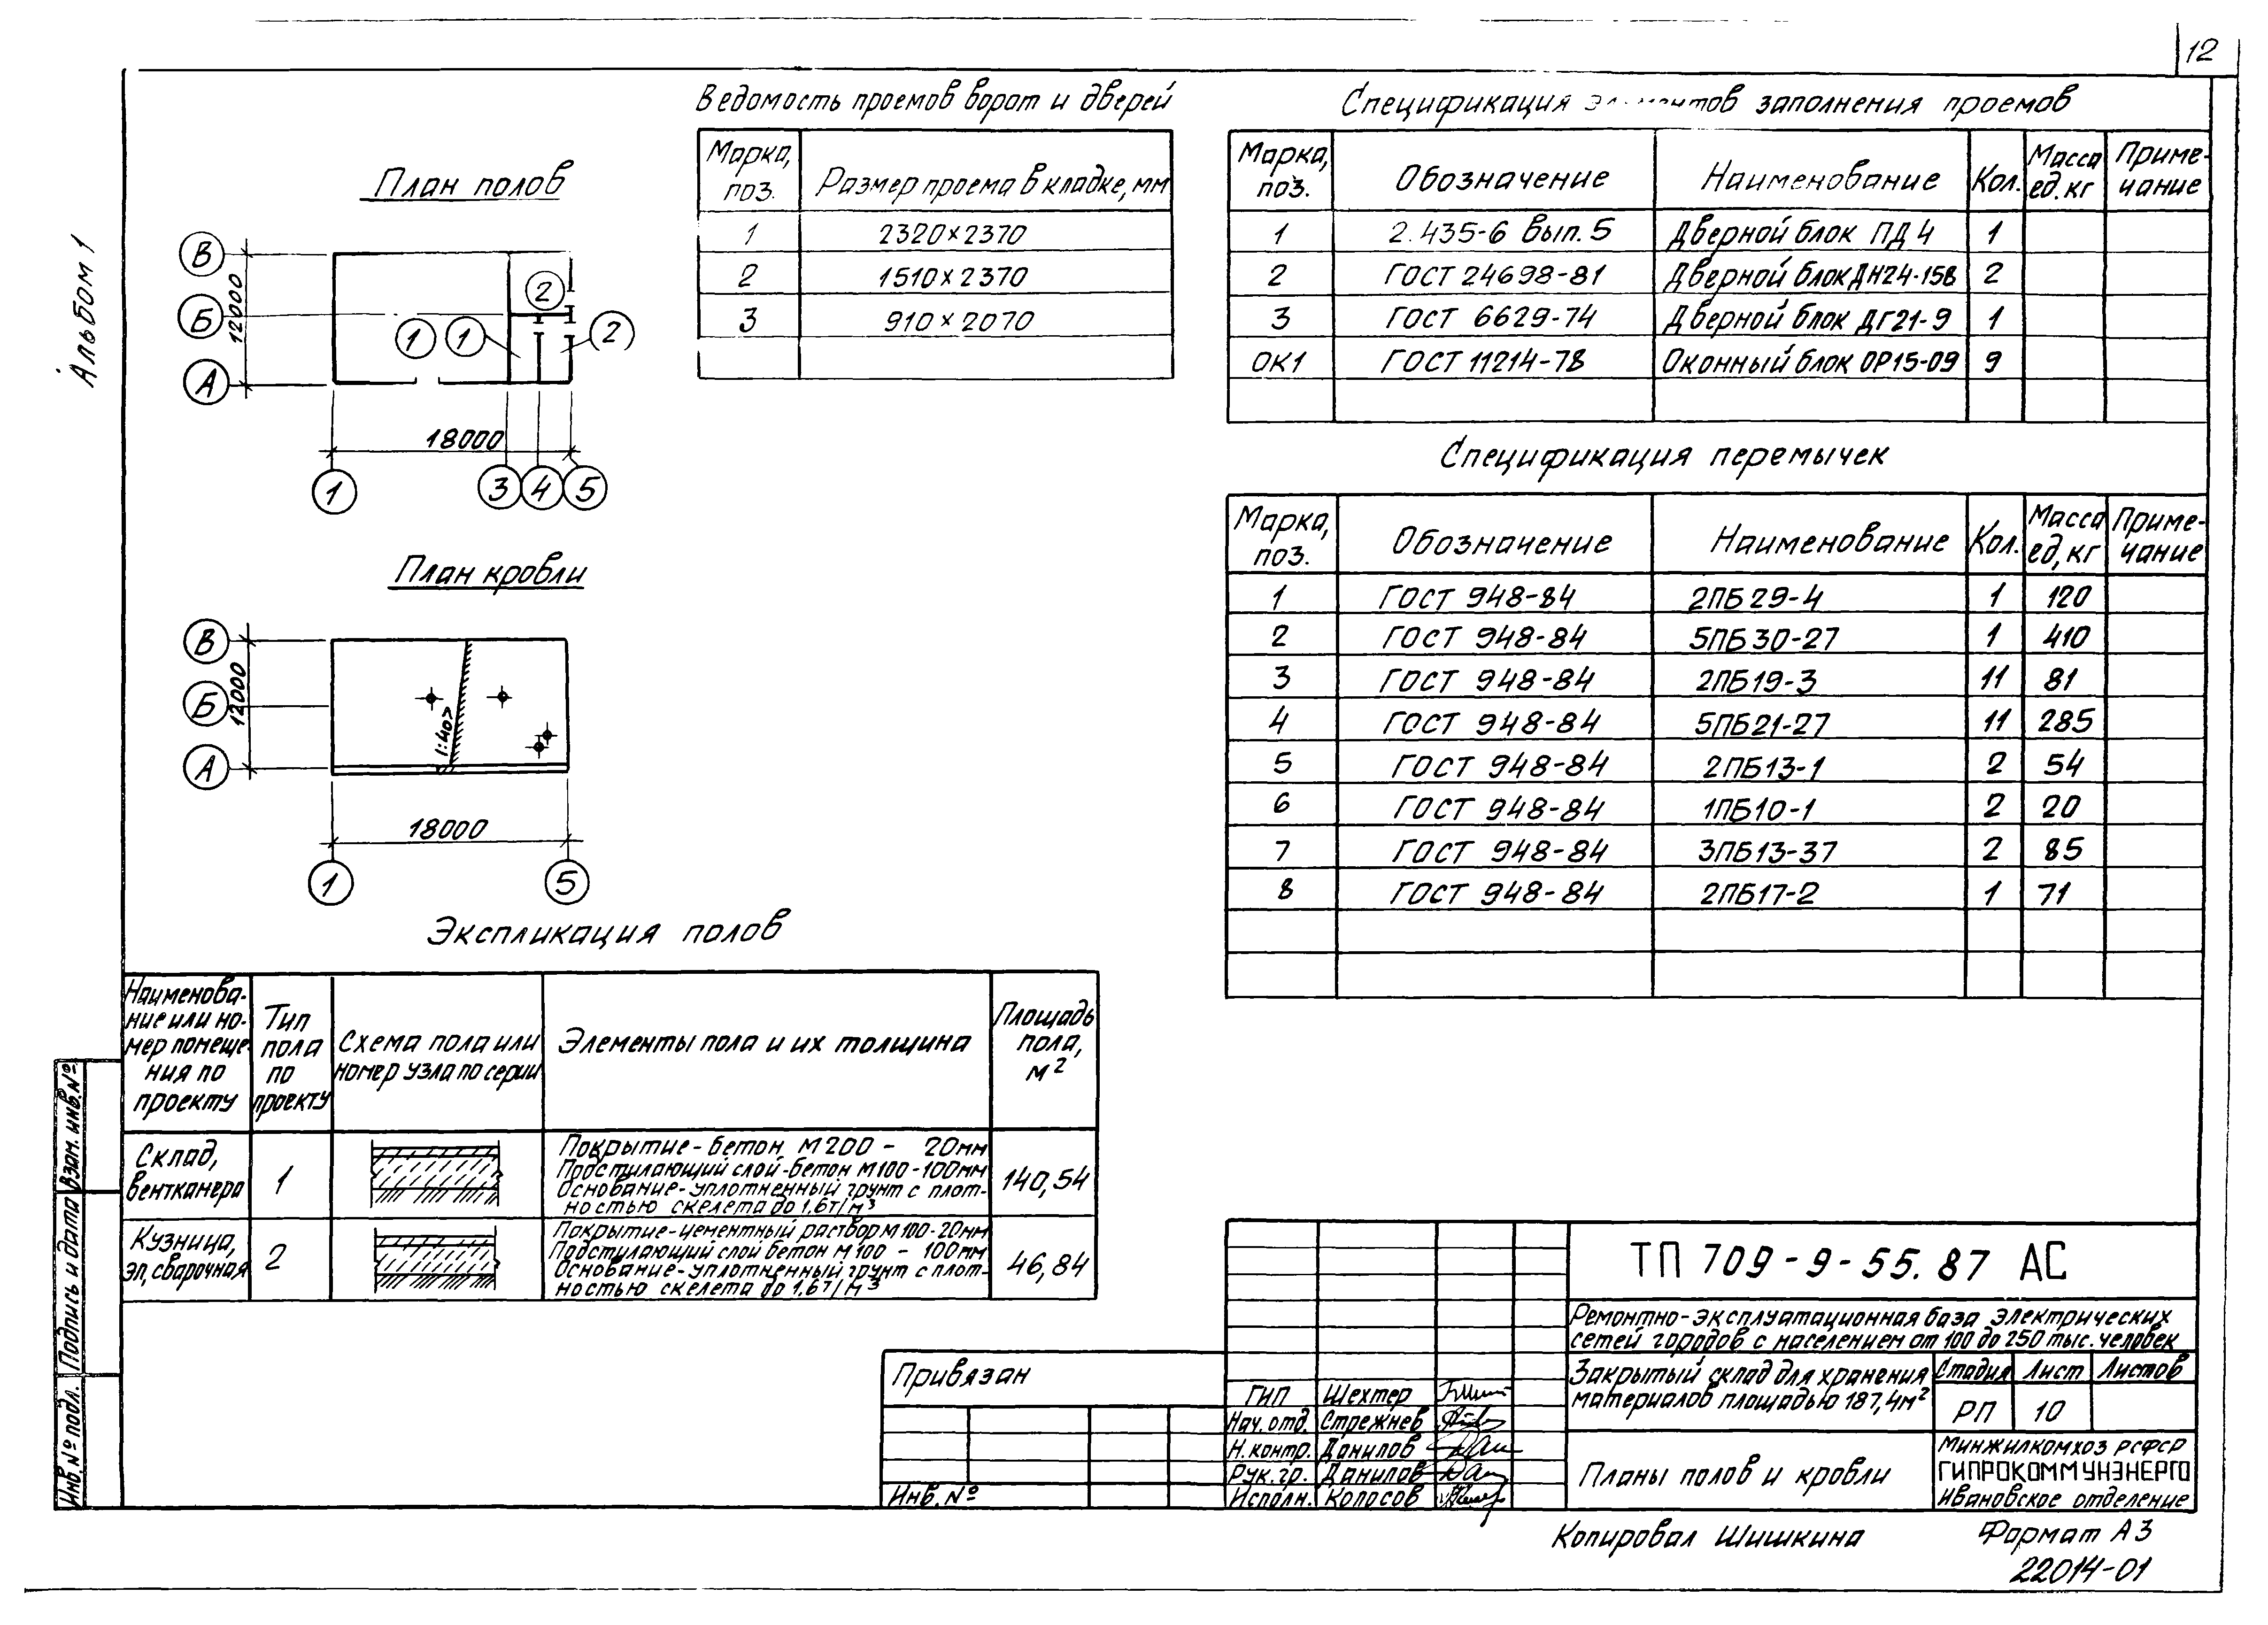 12
Альбом 1
План полов
В
Б
А
12000
1
1
2
2
18000
1
3
4
5
План кровли
В
Б
А
12000
1:40
18000
1
5
Ведомость проемов ворот и дверей
Марка, поз. | Размер проема в кладке, мм
1 | 2320×2370
2 | 1510×2370
3 | 910×2070
Спецификация элементов заполнения проемов
Марка, поз. | Обозначение | Наименование | Кол. | Масса ед. кг | Приме-чание
1 | 2.435-6 Вып. 5 | Дверной блок ПД4 | 1
2 | ГОСТ 24698-81 | Дверной блок ДН24-15В | 2
3 | ГОСТ 6629-74 | Дверной блок ДГ21-9 | 1
ОК1 | ГОСТ 11214-78 | Оконный блок ОР15-09 | 9
Спецификация перемычек
Марка, поз. | Обозначение | Наименование | Кол. | Масса ед, кг | Приме-чание
1 | ГОСТ 948-84 | 2ПБ29-4 | 1 | 120
2 | ГОСТ 948-84 | 5ПБ30-27 | 1 | 410
3 | ГОСТ 948-84 | 2ПБ19-3 | 11 | 81
4 | ГОСТ 948-84 | 5ПБ21-27 | 11 | 285
5 | ГОСТ 948-84 | 2ПБ13-1 | 2 | 54
6 | ГОСТ 948-84 | 1ПБ10-1 | 2 | 20
7 | ГОСТ 948-84 | 3ПБ13-37 | 2 | 85
8 | ГОСТ 948-84 | 2ПБ17-2 | 1 | 71
Экспликация полов
Наименова-
ние или но-
мер помеще-
ния по
проекту
Тип
пола
по
проекту
Схема пола или
номер узла по серии
Элементы пола и их толщина
Площадь
пола,
м²
Склад,
венткамера
1
Покрытие - бетон М200 - 20мм
Подстилающий слой - бетон М100-100мм
Основание - уплотненный грунт с плот-
ностью скелета до 1,6т/м³
140,54
Кузница,
эл, сварочная
2
Покрытие - цементный раствор М100-20мм
Подстилающий слой бетон М100 - 100мм
Основание - уплотненный грунт с плот-
ностью скелета до 1,6т/м³
46,84
Взам. инв. №
Подпись и дата
Инв. № подл.
Привязан
Инв. №
ГИП Шехтер
Нач. отд. Стрежнев
Н. контр. Данилов
Рук. гр. Данилов
Исполн. Колосов
ТП 709-9-55.87 АС
Ремонтно-эксплуатационная база электрических
сетей городов с населением от 100 до 250 тыс. человек
Закрытый склад для хранения
материалов площадью 187,4м²
Стадия Лист Листов
РП 10
Планы полов и кровли
Минжилкомхоз РСФСР
ГИПРОКОММУНЭНЕРГО
Ивановское отделение
Копировал Шишкина
Формат А3
22014-01